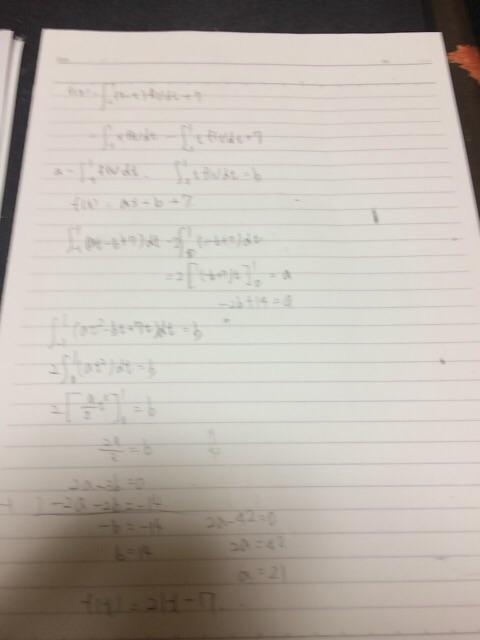 f(x) = ∫₋₁¹(x-t)f(t)dt+7
= ∫₋₁¹xf(t)dt - ∫₋₁¹tf(t)dt+7
a = ∫₋₁¹f(t)dt. ∫₋₁¹tf(t)dt=b
f(x) = ax-b+7
∫₋₁¹(at-b+7)dt = 2∫₀¹(-b+7)dt
=2[(-b+7)t]₀¹=a
-2b+14=a
∫₋₁¹(at²-bt+7t)dt=b
2∫₀¹(at²)dt=b
=b
=b
2a-3b=0
-2a-2b=-14
-b=-14 2a-42=0
b=14 2a=42
a=21
=21 -17